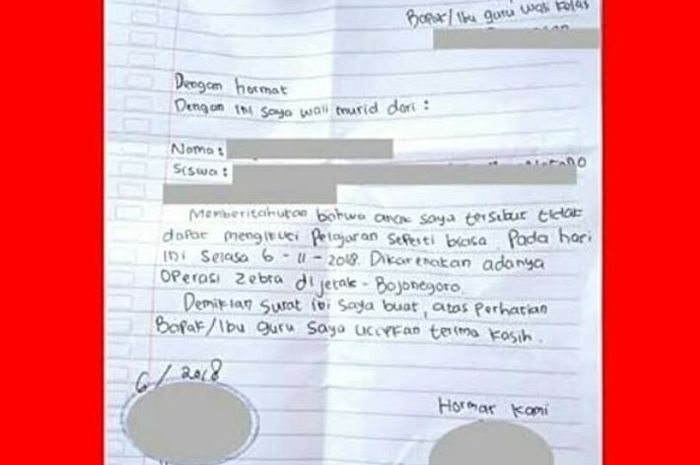 Bapak/Ibu guru wali kelas
Dengan hormat
Dengan ini saya wali murid dari :
Nama :
Siswa :
Memberitahukan bahwa anak saya tersebut tidak
dapat mengikuti Pelajaran seperti biasa. Pada hari
ini Selasa 6 - 11 - 2018. Dikarenakan adanya
Operasi Zebra di jetak - Bojonegoro.
Demikian Surat ini saya buat, atas perhatian
Bapak/Ibu guru saya ucapkan terima kasih.
6 / 2018
Hormat Kami